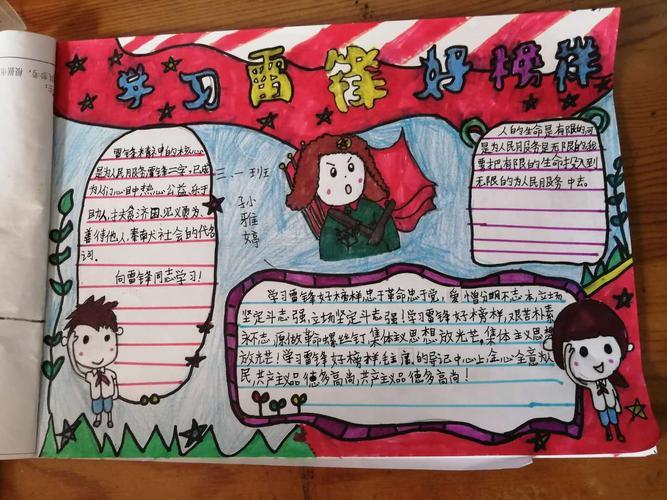 学习雷锋好榜样
雷锋精神的核心
是为人民服务雷锋二字,已成
为人们心目中热心公益、乐于
助人、扶贫济困、见义勇为、
善待他人、奉献社会的代名
词。
向雷锋同志学习!
三.一班
孙雅婷
人的生命是有限的可
是为人民服务是无限的我
要把有限的生命投入到
无限的为人民服务中去。
学习雷锋好榜样,忠于革命忠于党,爱憎分明不忘本,立场
坚定斗志强,立场坚定斗志强!学习雷锋好榜样,艰苦朴素
永不忘,愿做革命螺丝钉,集体主义思想放光芒,集体主义思想
放光芒!学习雷锋好榜样,毛主席的教导记心上全心全意为人
民,共产主义品德多高尚,共产主义品德多高尚!